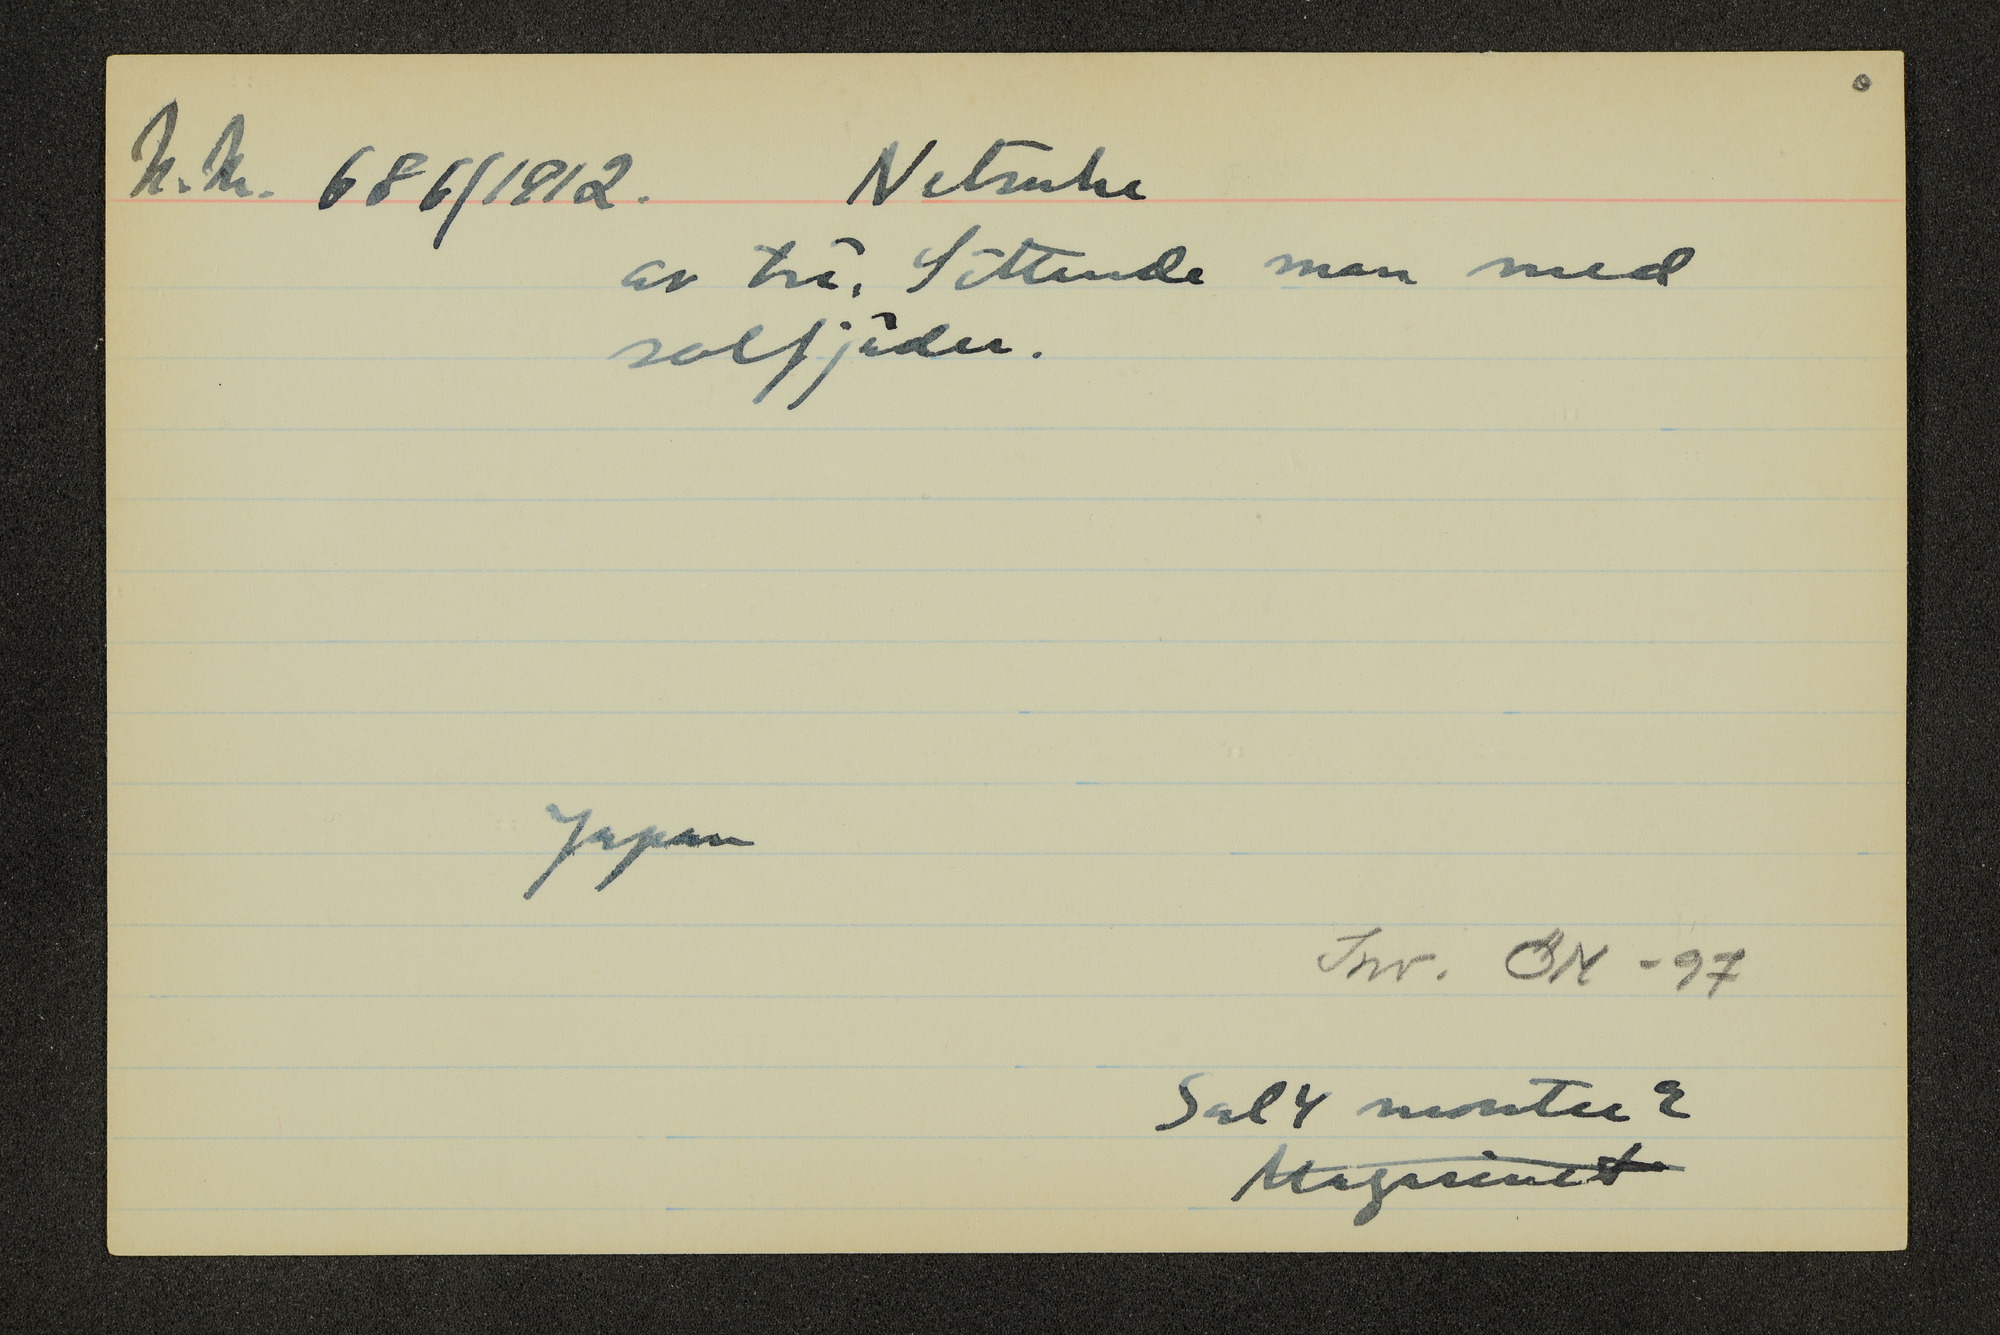 N.M. 686/1912. Netsuke
av trä. Sittande man med
solfjäder.
Japan
Inv. ÖN -97
Sal 4 monter 2
Magasinet